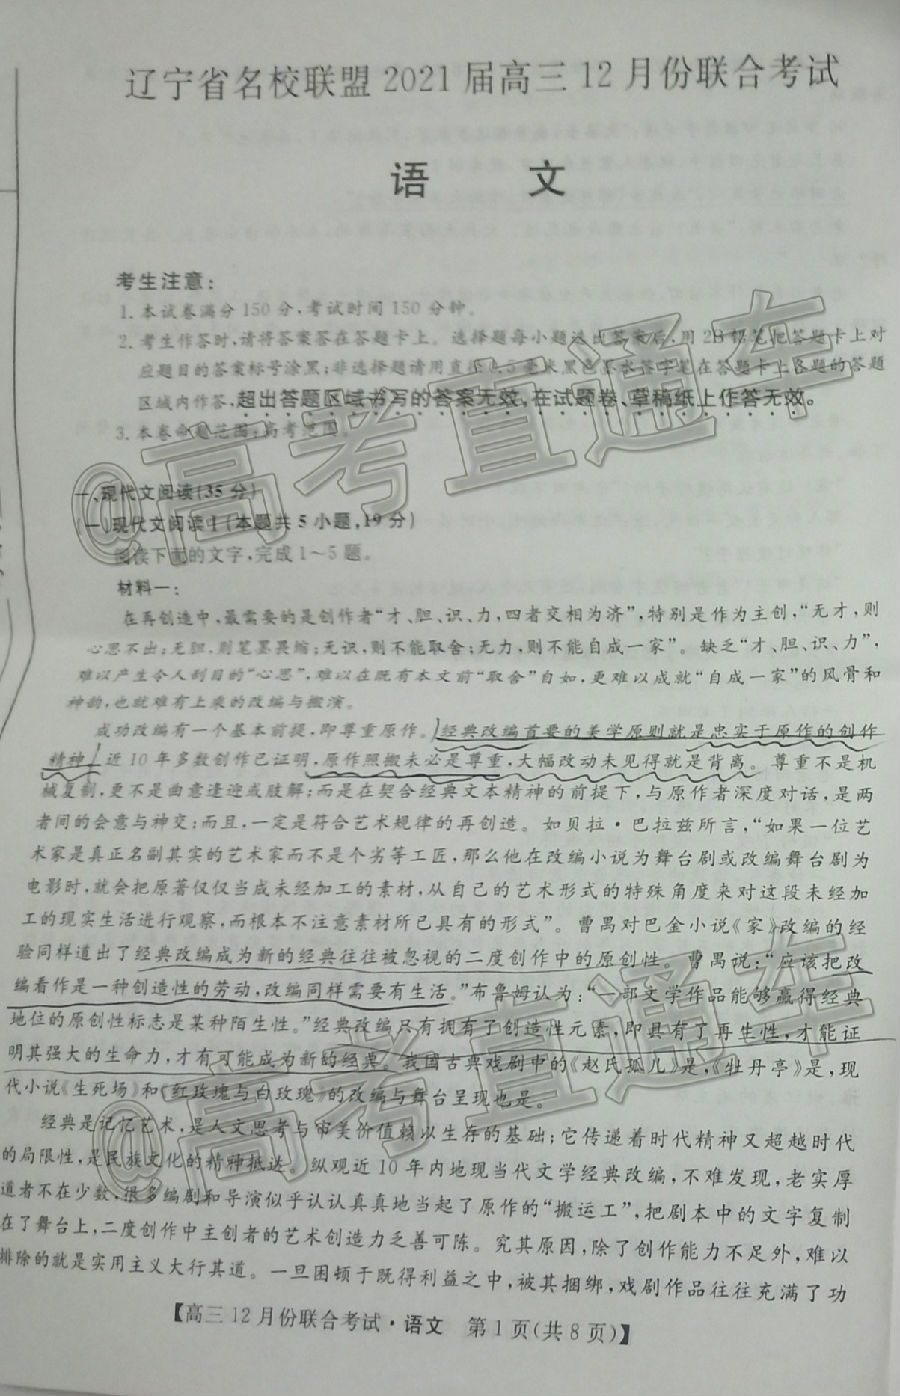 辽宁省名校联盟2021届高三12月份联合考试
语 文
考生注意:
1.本试卷满分150分,考试时间150分钟。
2.考生作答时,请将答案答在答题卡上。选择题每小题选出答案后,用2B铅笔把答题卡上对
应题目的答案标号涂黑;非选择题请用直径0.5毫米黑色墨水签字笔在答题卡上各题的答题
区域内作答,超出答题区域书写的答案无效,在试题卷、草稿纸上作答无效。
3.本卷命题范围:高考范围。
一、现代文阅读(35分)
(一)现代文阅读Ⅰ(本题共5小题,19分)
阅读下面的文字,完成1~5题。
材料一:
在再创造中,最需要的是创作者“才、胆、识、力,四者交相为济”,特别是作为主创,“无才,则
心思不出;无胆,则笔墨畏缩;无识,则不能取舍;无力,则不能自成一家”。缺乏“才、胆、识、力”,
难以产生令人刮目的“心思”,难以在既有本文前“取舍”自如,更难以成就“自成一家”的风骨和
神韵,也就难有上乘的改编与搬演。
成功改编有一个基本前提,即尊重原作。经典改编首要的美学原则就是忠实于原作的创作
精神。近10年多数创作已证明,原作照搬未必是尊重,大幅改动未见得就是背离。尊重不是机
械复制,更不是曲意逢迎或肢解;而是在契合经典文本精神的前提下,与原作者深度对话,是两
者间的会意与神交;而且,一定是符合艺术规律的再创造。如贝拉·巴拉兹所言,“如果一位艺
术家是真正名副其实的艺术家而不是个劣等工匠,那么他在改编小说为舞台剧或改编舞台剧为
电影时,就会把原著仅仅当成未经加工的素材,从自己的艺术形式的特殊角度来对这段未经加
工的现实生活进行观察,而根本不注意素材所已具有的形式”。曹禺对巴金小说《家》改编的经
验同样道出了经典改编成为新的经典往往被忽视的二度创作中的原创性。曹禺说:“应该把改
编看作是一种创造性的劳动,改编同样需要有生活。”布鲁姆认为:“一部文学作品能够赢得经典
地位的原创性标志是某种陌生性。”经典改编只有拥有了创造性元素,即具有了再生性,才能证
明其强大的生命力,才有可能成为新的经典。我国古典戏剧中的《赵氏孤儿》是,《牡丹亭》是,现
代小说《生死场》和《红玫瑰与白玫瑰》的改编与舞台呈现也是。
经典是记忆艺术,是人文思考与审美价值赖以生存的基础;它传递着时代精神又超越时代
的局限性,是民族文化的精神抵达。纵观近10年内地现当代文学经典改编,不难发现,老实厚
道者不在少数,很多编剧和导演似乎认认真真地当起了原作的“搬运工”,把剧本中的文字复制
在了舞台上,二度创作中主创者的艺术创造力乏善可陈。究其原因,除了创作能力不足外,难以
排除的就是实用主义大行其道。一旦困顿于既得利益之中,被其捆绑,戏剧作品往往充满了功
【高三12月份联合考试·语文 第1页(共8页)】
@高考直通车
@高考直通车